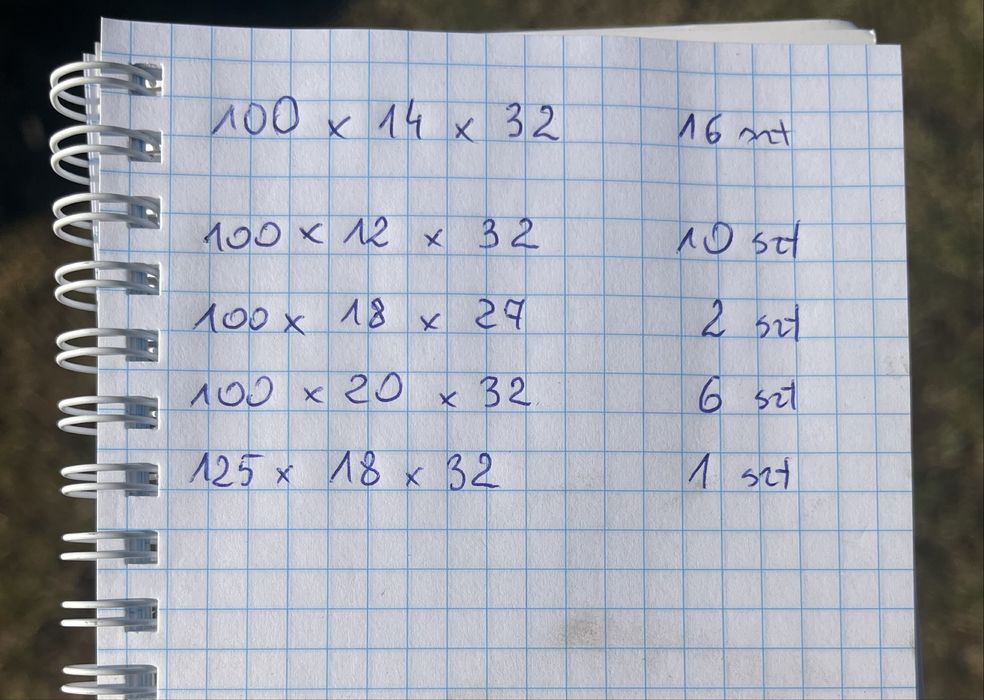 100 x 14 x 32 16 szt
100 x 12 x 32 10 szt
100 x 18 x 27 2 szt
100 x 20 x 32 6 szt
125 x 18 x 32 1 szt